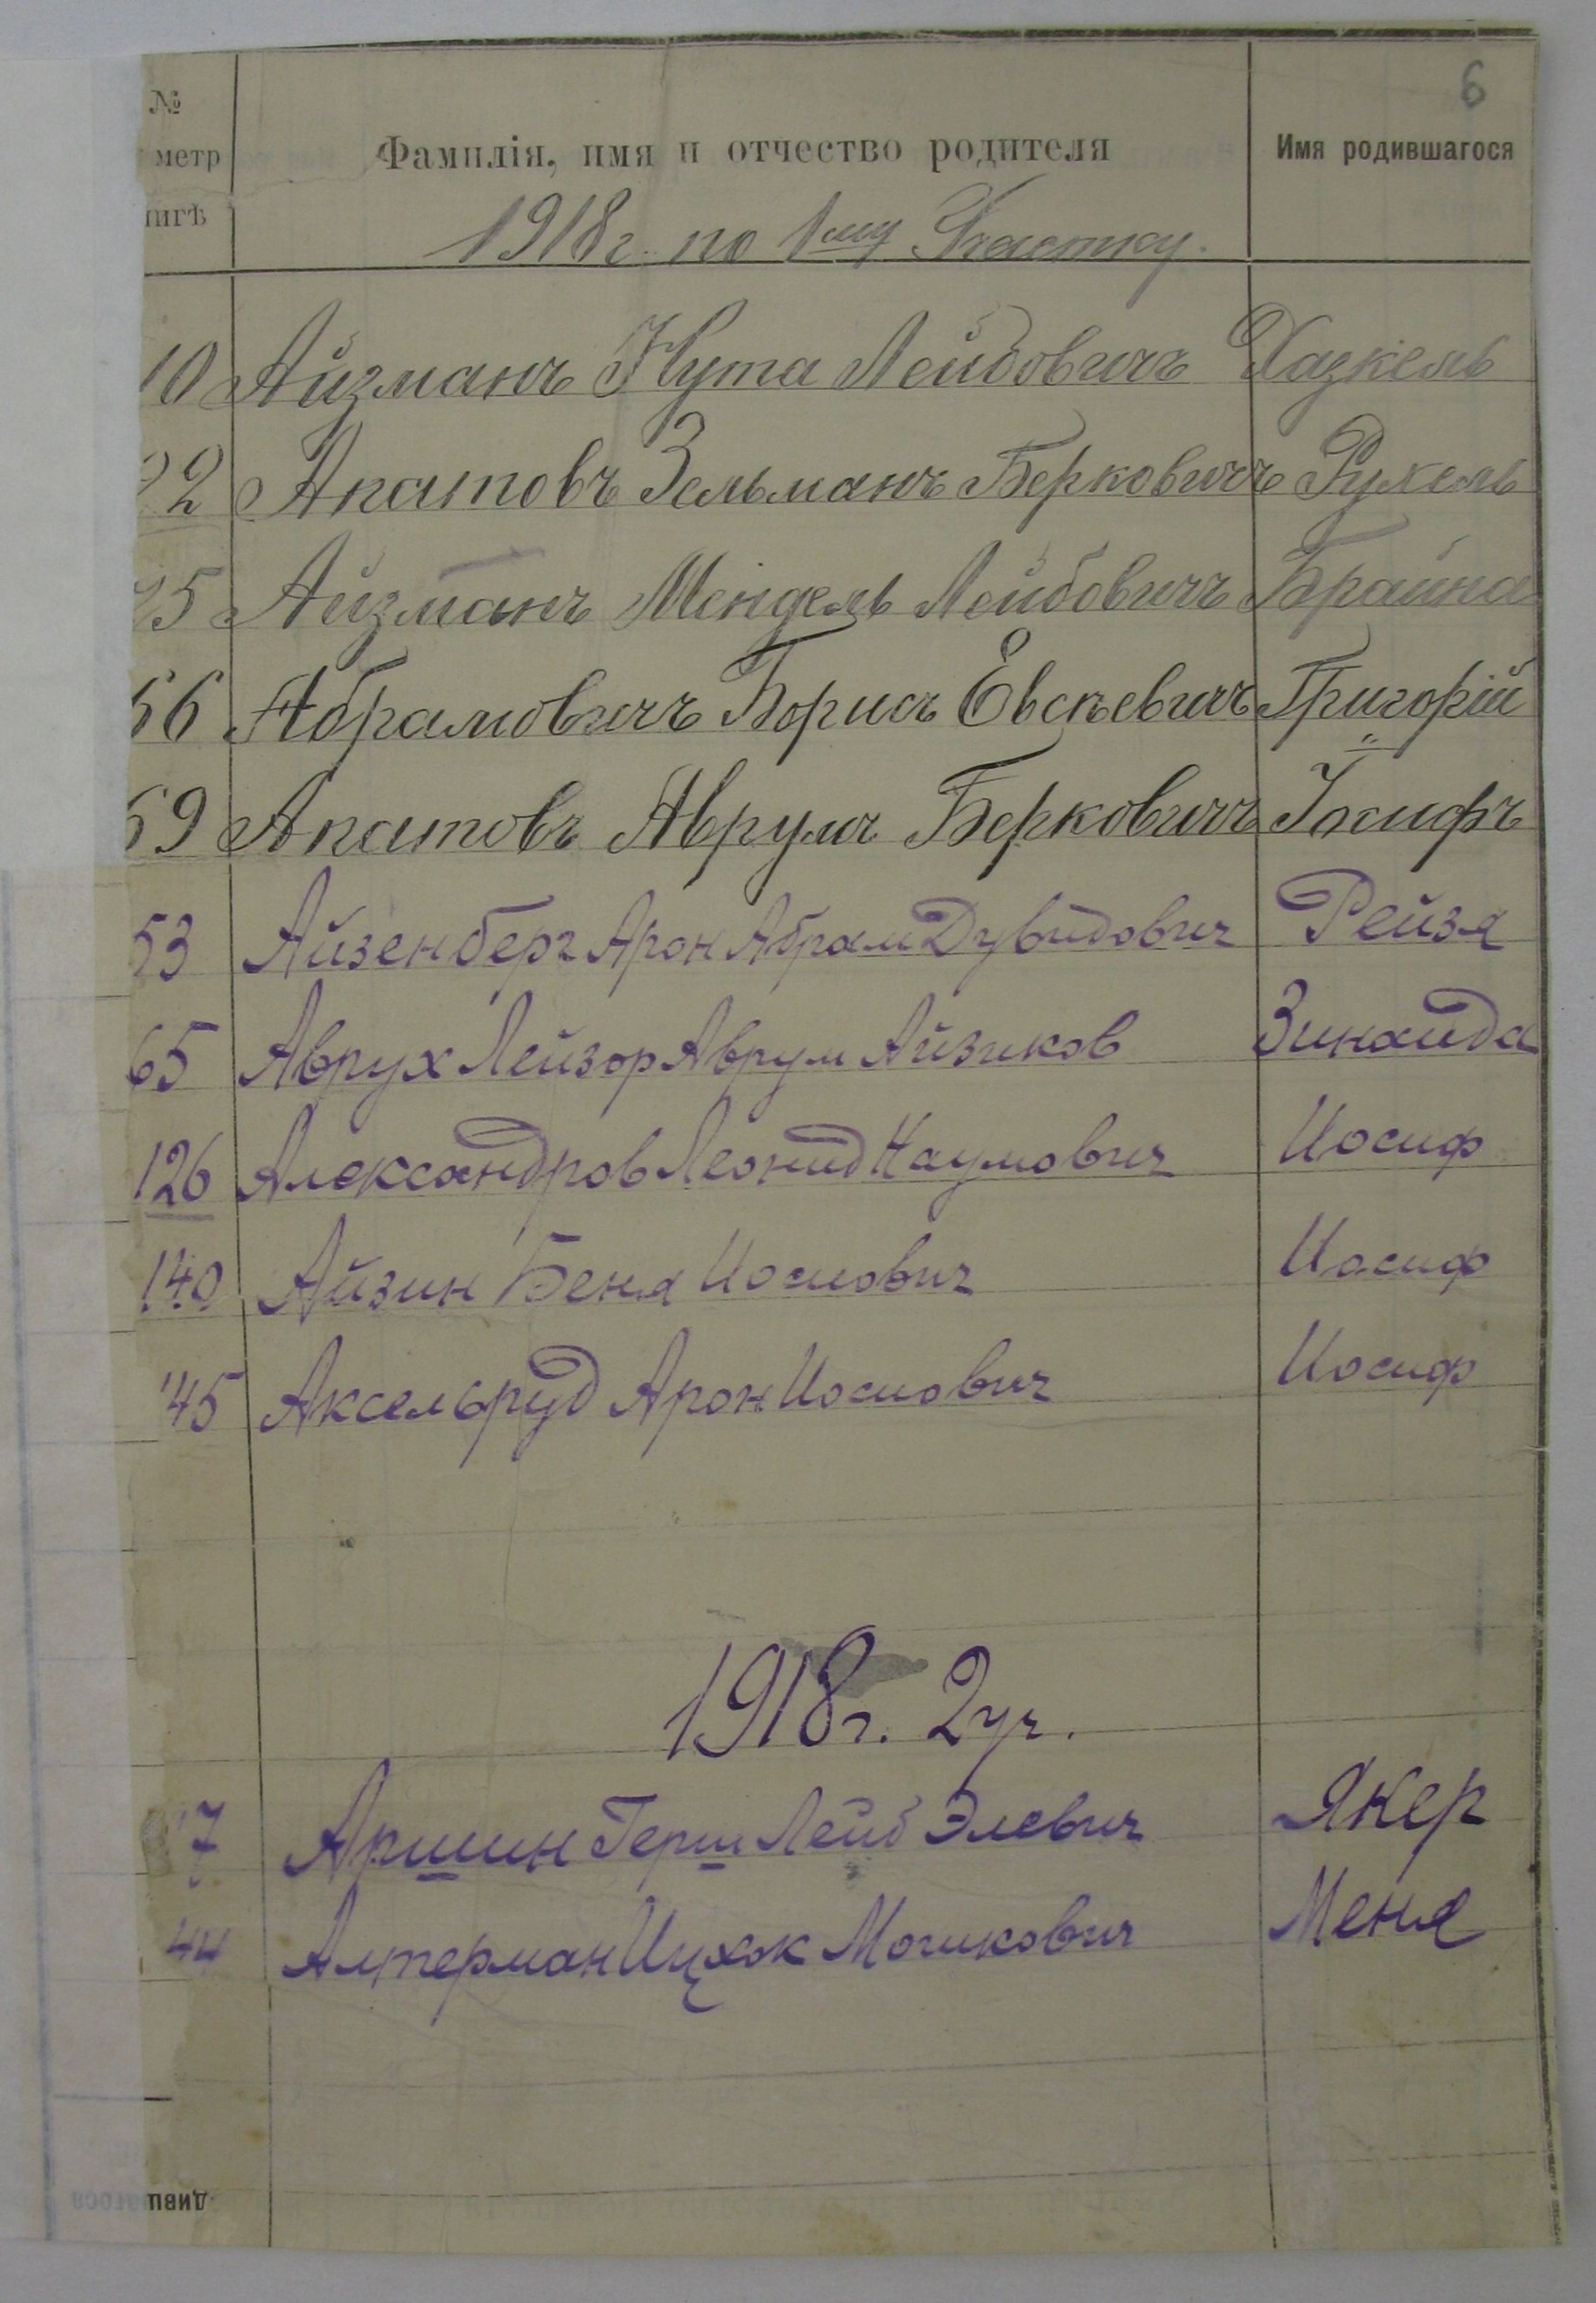 6
№
метр
нигѣ
Фамилія, имя и отчество родителя
Имя родившагося
1918 г. по 1му Участку.
10 Айзманъ Нута Лейбовичъ Хаскель
22 Апатовъ Зельманъ Берковичъ Рухель
25 Айзманъ Мендель Лейбовичъ Брайна
56 Абрамовичъ Борисъ Евсѣевичъ Григорій
59 Апатовъ Аврумъ Берковичъ Іосифъ
53 Айзенберг Арон Абрам Дувидович Рейзя
65 Аврух Лейзор Аврум Айзиков Зинаида
126 Александров Леонид Наумович Иосиф
140 Айзин Беня Иосиович Иосиф
145 Аксельруд Арон Иосиович Иосиф
1918 г. 2 уч.
17 Аршин Герш Лейб Элевич Якер
44 Алтерман Ицхок Мошкович Меня
дивш